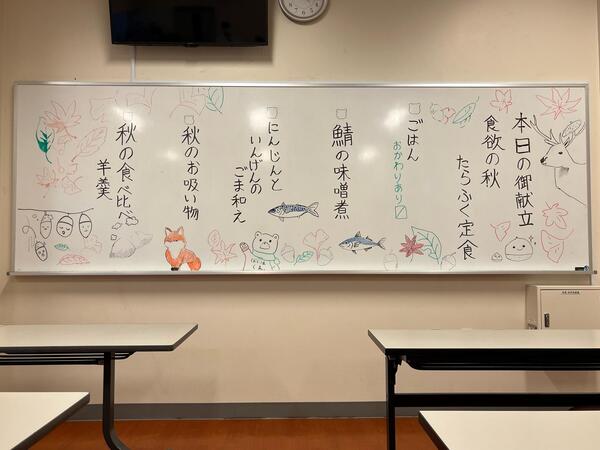 本日の御献立
食欲の秋
たらふく定食
ごはん
おかわりあり
鯖の味噌煮
にんじんと
いんげんの
ごま和え
秋のお吸い物
秋の食べ比べ
羊羹